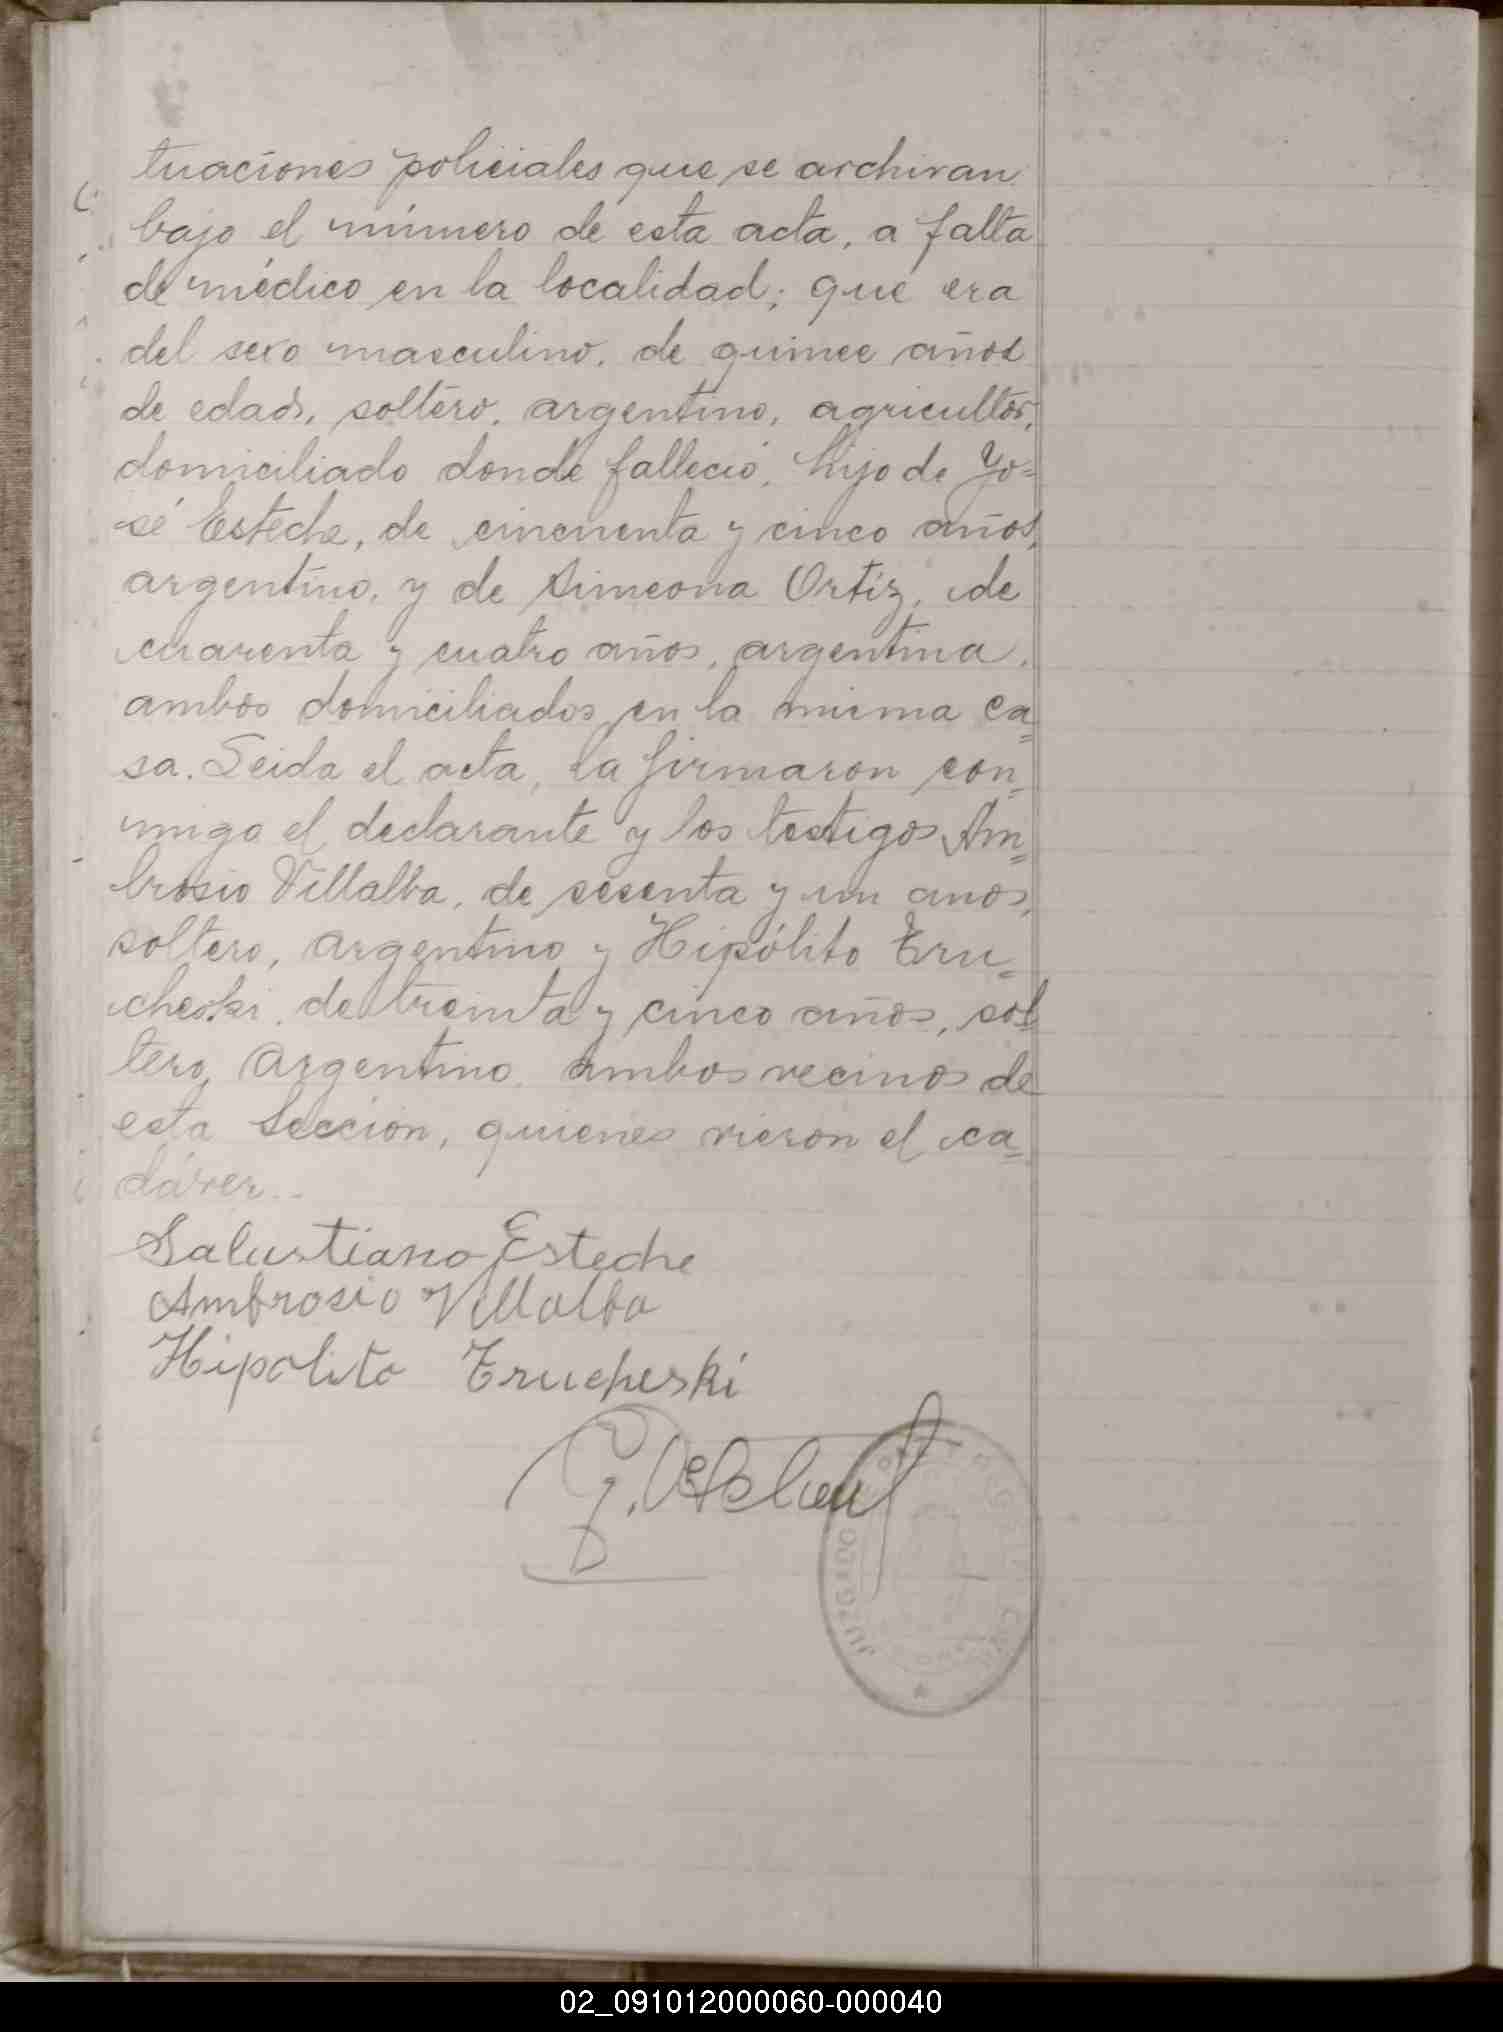 tuaciones policiales que se archivan
bajo el número de esta acta, a falta
de médico en la localidad; que era
del sexo masculino, de quince años
de edad, soltero, argentino, agricultor,
domiciliado donde falleció, hijo de Jo=
sé Esteche, de cincuenta y cinco años,
argentino, y de Simeona Ortiz, de
cuarenta y cuatro años, argentina,
ambos domiciliados en la misma ca=
sa. Leida el acta, la firmaron con=
migo el declarante y los testigos Am=
brosio Villalba, de sesenta y un años,
soltero, argentino y Hipólito Tru=
cheski, de treinta y cinco años, sol
tero, argentino, ambos vecinos de
esta Sección, quienes vieron el ca=
dáver..
Salustiano Esteche
Ambrosio Villalba
Hipolito Trucheski
JUZGADO
02_091012000060-000040